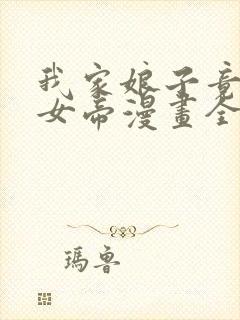 我家娘子竟
女帝漫畫全
瑪魯